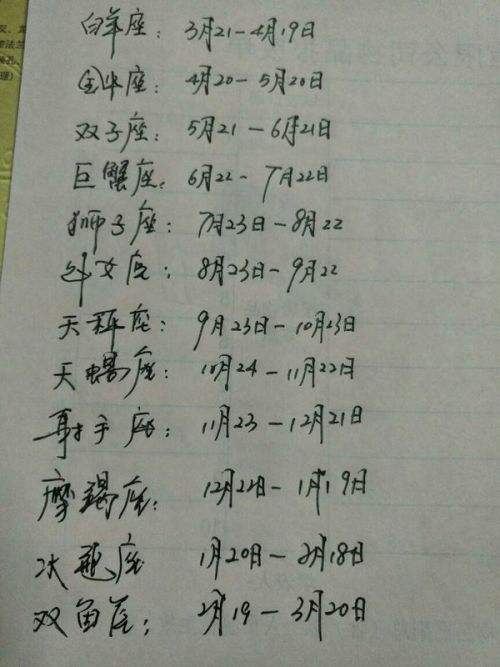 白羊座：3月21-4月19日
金牛座：4月20-5月20日
双子座：5月21-6月21日
巨蟹座：6月22-7月22日
狮子座：7月23日-8月22
处女座：8月23日-9月22
天秤座：9月23日-10月23日
天蝎座：10月24-11月22日
射手座：11月23-12月21日
摩羯座：12月22日-1月19日
水瓶座 1月20日-2月18日
双鱼座：2月19-3月20日